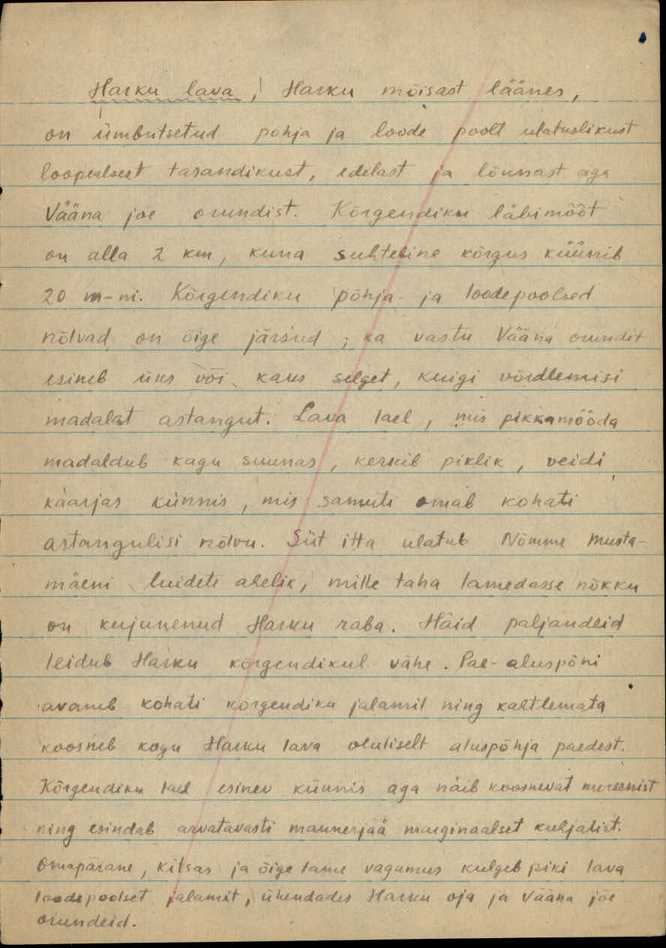 Harku lava, Harku mõisast läänes,
on ümbritsetud põhja ja loode poolt ulatuslikust
loopealsest tasandikust, edelast ja lõunast aga
Vääna jõe orundist. Kõrgendiku läbimõõt
on alla 2 km, kuna suhteline kõrgus küünib
20 m-ni. Kõrgendiku põhja- ja loodepoolsed
nõlvad on õige järsud; ka vastu Vääna orundit
esineb üks või kaks selget, kuigi võrdlemisi
madalat astangut. Lava lael, mis pikkamööda
madaldub kagu suunas, kerkib piklik, veidi
kaarjas künnis, mis samuti omab kohati
astangulisi nõlvu. Siit itta ulatub Nõmme Musta-
mäeni luidete ahelik, mille taha lamedasse nõkku
on kujunenud Harku raba. Häid paljandeid
leidub Harku kõrgendikul vähe. Pae-aluspõhi
avaneb kohati kõrgendiku jalamil ning kahtlemata
koosneb kogu Harku lava oluliselt aluspõhja paedest.
Kõrgendiku lael esinev künnis aga näib koosnevat moreenist
ning esindab arvatavasti mannerjää marginaalset kuhjatist.
Omapärane, kitsas ja õige lame vagumus kulgeb piki lava
loodepoolset jalamit, ühendades Harku oja ja Vääna jõe
orundeid.